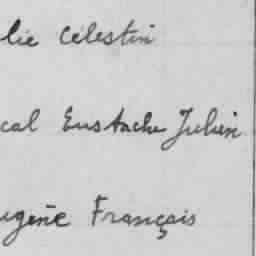 lie Célestin
cal Eustache Julien
ugène Français